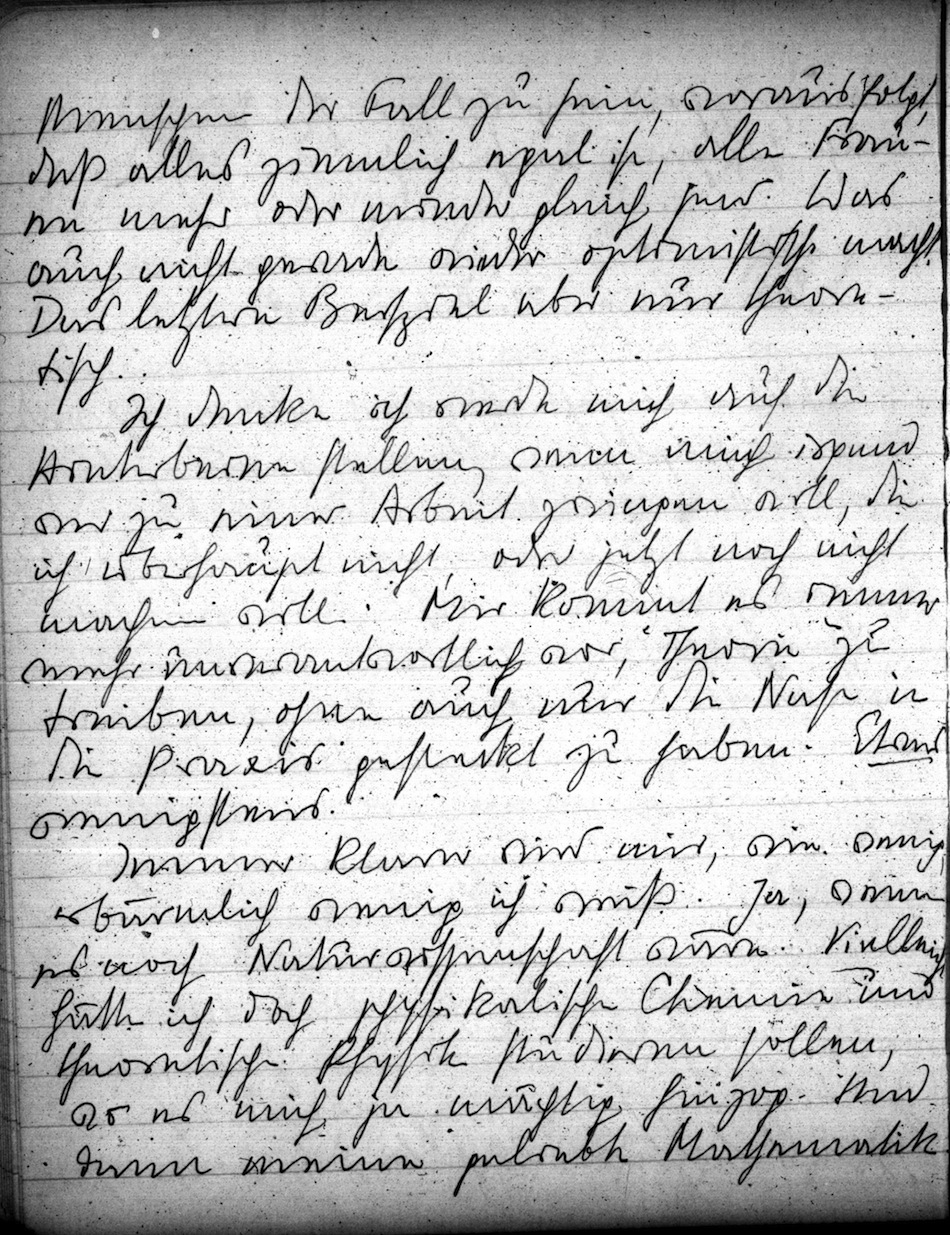 Menschen der Fall zu sein, woraus folgt,
daß alles ziemlich egal ist, alle Frau-
en mehr oder minder gleich sind. Was
auch nicht gerade wieder optimistisch macht.
Das letztere Beispiel aber nur theore-
tisch.
Ich denke ich werde mich auf die
Hinterbeine stellen, wenn mich irgend
wer zu einer Arbeit zwingen will, die
ich überhaupt nicht, oder jetzt noch nicht
machen will. Mir kommt es immer
mehr unverantwortlich vor, "Theorie" zu
treiben, ohne auch nur die Nase in
die Praxis gesteckt zu haben. Etwas
wenigstens.
Immer klarer wird mir, wie wenig,
erbärmlich wenig ich weiß. Ja, wenn
es noch Naturwissenschaft wäre. Vielleich
hätte ich doch physikalische Chemie und
theoretische Physik studieren sollen,
wo es mich ja mächtig hinzog. Und
dann meine geliebte Mathematik